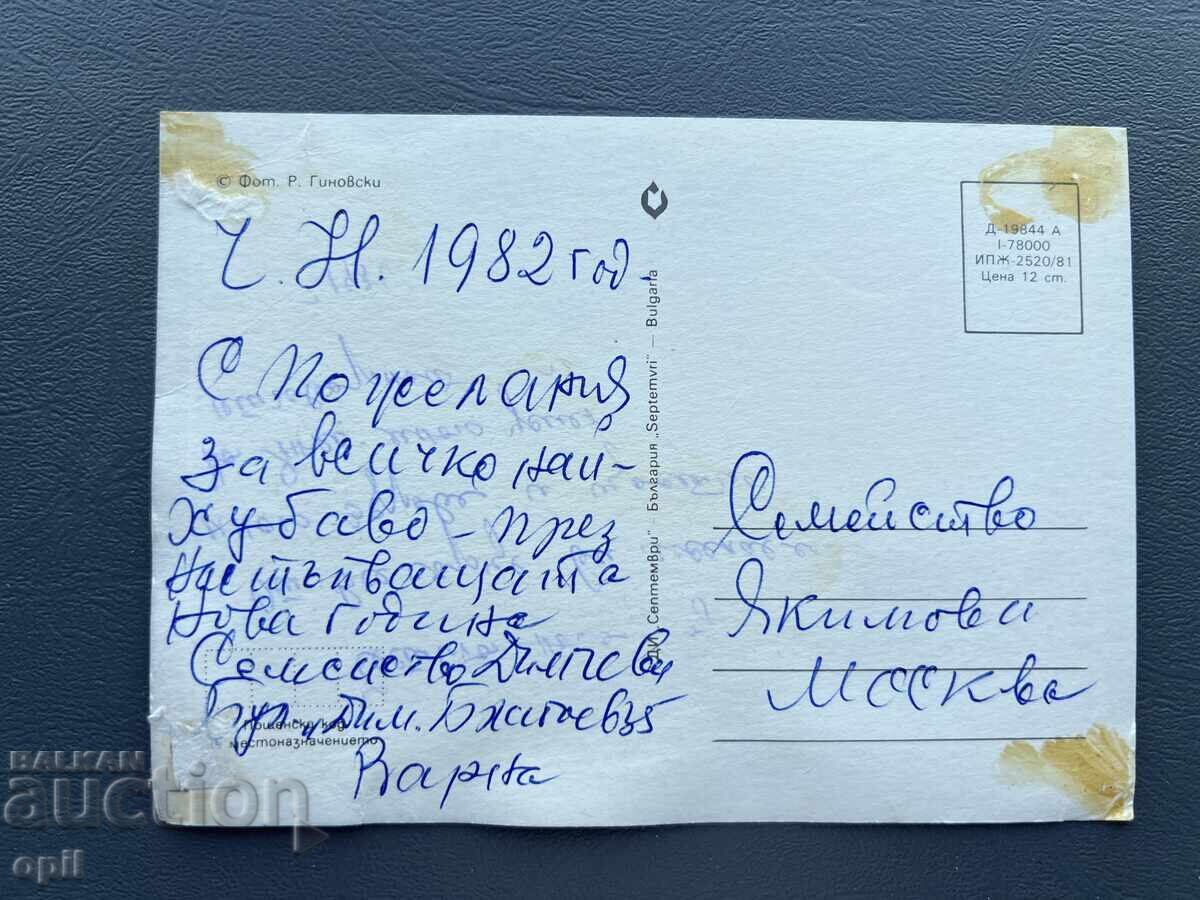 © Фот. Р. Гиновски
Ч. Н. 1982 год.
С пожелания
за всичко най-
хубаво - през
настъпващата
Нова година
Семейство Димчеви
Бул. Дим.
Варна
Пощенски код
местоназначението
ДИ „Септември" — България „Septemvri" — Bulgaria
Д-19844 А
I-78000
ИПЖ-2520/81
Цена 12 ст.
Семейство
Якимови
Москва
BALKAN
auction
opil